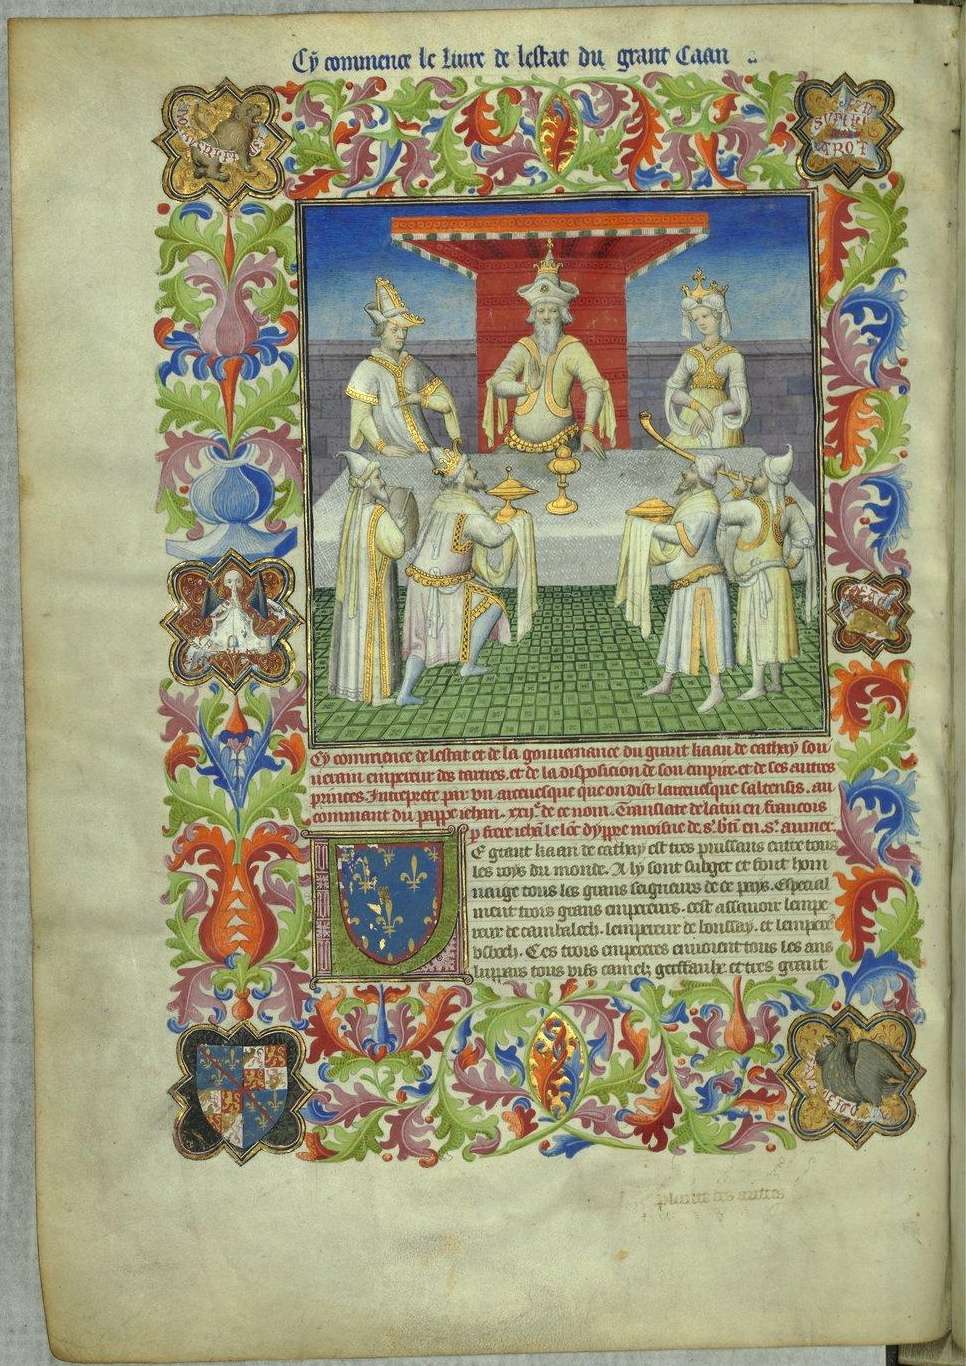 Cy commence le liure de lestat du grant Caan
Cy commence de lestat et de la gouuernance du grant kaan de cathay sou
uerain empereur des tartres. et de la disposicion de son empire. et de ses autres
princes. Interprete par vn arceuesque que on dist larceuesque saltensis. au
command du pappe iehan. xxije. de ce nom. Translate de latin en francois
p frere iehan le lonc dyppre moisne de st. btin en st. aumer.
E grant kaan de cathay est tres puissans entre tous
les roys du monde. A ly sont subget et font hom
maige tous les grans seigneurs de ce pays. Especial
ment trois grans empereurs. cest assauoir lempe
reur de cambalech. lempereur de boussay. et lempere
vsbech. Ces trois empereres enuoient tous les ans
luppars tous vifs camelz gerffaulx. et tres grant